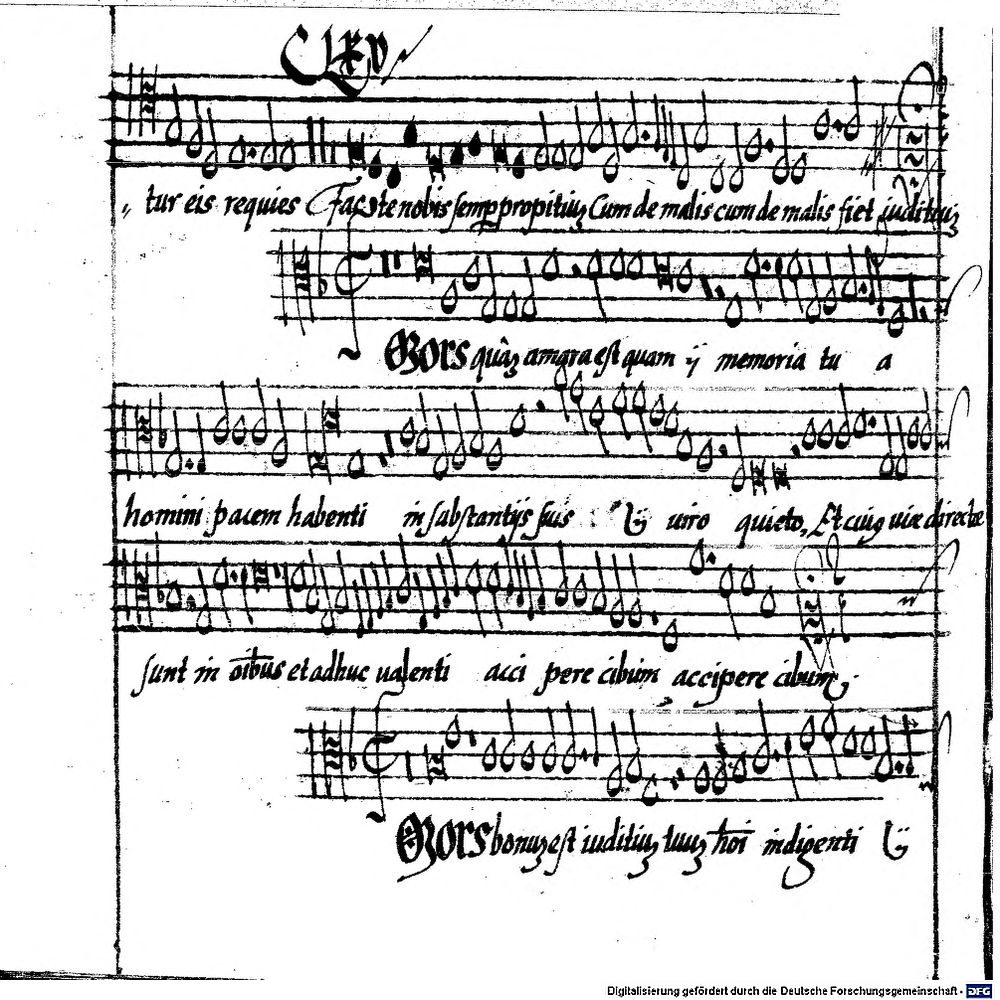 CLXV
tur eis requies Fac ste nobis semp propitiuz Cum de malis cum de malis fiet iuditiuz
Mors quàz amara est quam ij memoria tu a
homini pacem habenti in sabstantijs suis ij uiro quieto, Et cuiq uiæ directæ
sunt in oībus et adhuc ualenti acci pere cibum accipere cibum
Mors bonuz est iuditiuz tuuz hoī indigenti ij
Digitalisierung gefördert durch die Deutsche Forschungsgemeinschaft - DFG